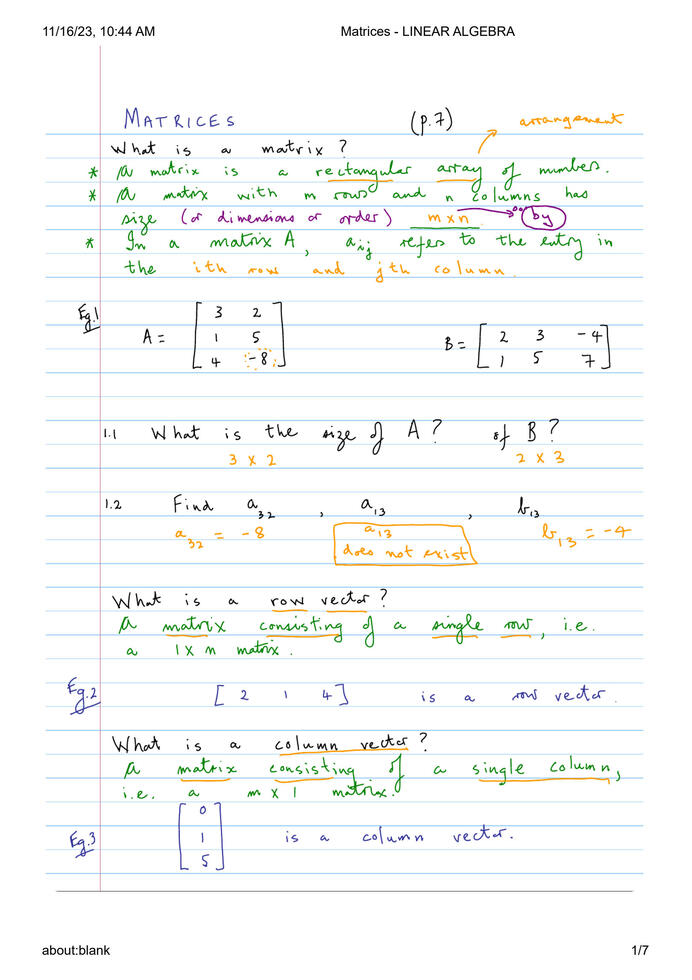 11/16/23, 10:44 AM Matrices - LINEAR ALGEBRA
MATRICES (p.7) arrangement
What is a matrix ?
* A matrix is a rectangular array of numbers.
* A matrix with m rows and n columns has
size (or dimensions or order) m x n . by
* In a matrix A, aij refers to the entry in
the ith row and jth column.
Eg.1
A = [ 3 2
1 5
4 -8 ]
B = [ 2 3 -4
1 5 7 ]
1.1 What is the size of A ? of B ?
3 x 2 2 x 3
1.2 Find a32 , a13 , b13
a32 = -8 a13 does not exist b13 = -4
What is a row vector ?
A matrix consisting of a single row, i.e.
a 1 x n matrix .
Eg.2 [ 2 1 4 ] is a row vector .
What is a column vector ?
A matrix consisting of a single column,
i.e. a m x 1 matrix.
Eg.3 [ 0
1
5 ] is a column vector.
about:blank 1/7